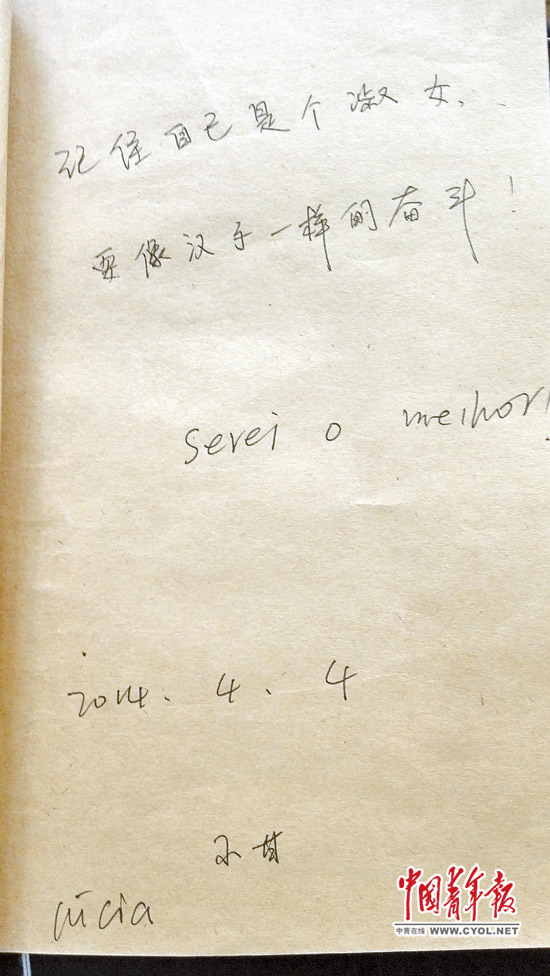 记住自己是个淑女、
要像汉子一样的奋斗！
serei o melhor!
2014. 4. 4
小甘
Lúcia
中國青年报
中青在线 WWW.CYOL.NET